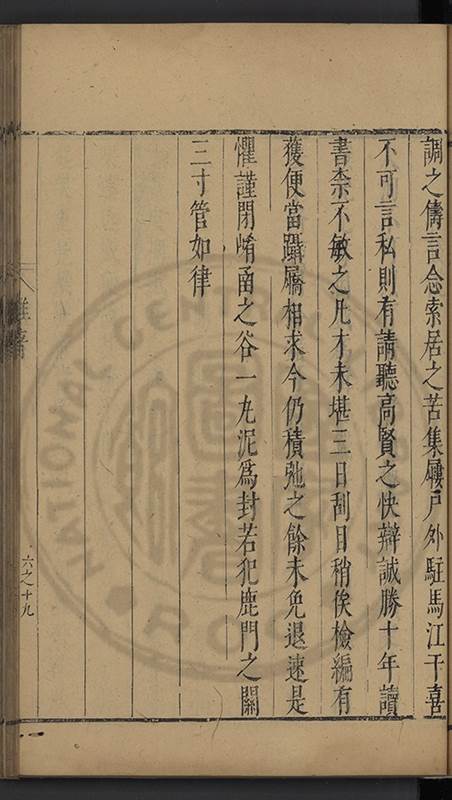 調之儔言念索居之苦集屨戶外駐馬江干喜
不可言私則有請聽高賢之快辯誠勝十年讀
書柰不敏之凡才未堪三日刮目稍俟檢編有
獲便當躡屩相求今仍積弛之餘未免退速是
懼謹閉崤函之谷一丸泥為封若犯鹿門之關
三寸管如律
六之十九